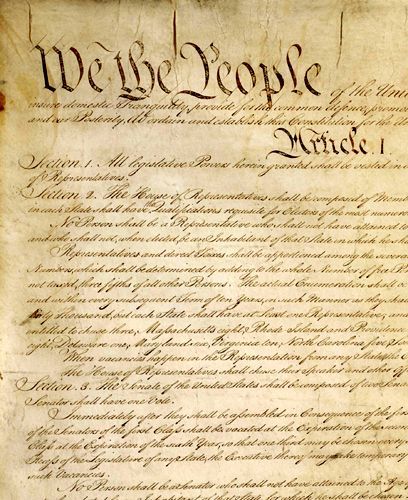 We the People of the Unit
insure domestic Tranquility, provide for the common defence, promo
and our Posterity, do ordain and establish this Constitution for the Un
Article. I.
Section. 1. All legislative Powers herein granted shall be vested in a
of Representatives.
Section. 2. The House of Representatives shall be composed of Mem
in each State shall have Qualifications requisite for Electors of the most numero
No Person shall be a Representative who shall not have attained to
and who shall not, when elected, be an Inhabitant of that State in which he sha
Representatives and direct Taxes shall be apportioned among the severa
Numbers, which shall be determined by adding to the whole Number of free P
not taxed, three fifths of all other Persons. The actual Enumeration shall
and within every subsequent Term of ten Years, in such Manner as they sha
thirty Thousand, but each State shall have at Least one Representative; and
entitled to chuse three, Massachusetts eight, Rhode Island and Providence
eight, Delaware one, Maryland six, Virginia ten, North Carolina five, So
When vacancies happen in the Representation from any State, the
The House of Representatives shall chuse their Speaker and other Of
Section. 3. The Senate of the United States shall be composed of two Sena
Senator shall have one Vote.
Immediately after they shall be assembled in Consequence of the firs
of the Senators of the first Class shall be vacated at the Expiration of the
Class at the Expiration of the sixth Year, so that one third may be chosen every
Recess of the Legislature of any State, the Executive thereof may make tempora
such Vacancies.
No Person shall be a Senator who shall not have attained to the Age